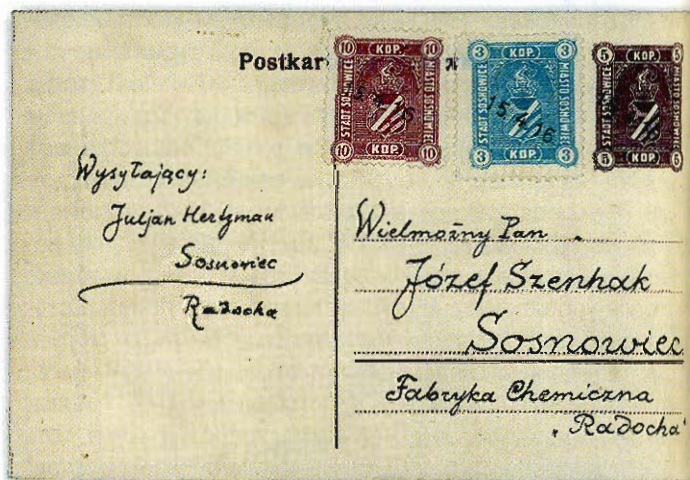 Postkar
10 KOP. 10
STADT SOSNOWICE
MIASTO SOSNOWIEC
10 KOP. 10
3 KOP. 3
STADT SOSNOWICE
MIASTO SOSNOWIEC
15.4.16
3 KOP. 3
5 KOP. 5
STADT SOSNOWICE
MIASTO SOSNOWIEC
5 KOP. 5
Wysyłający:
Juljan Hertzman
Sosnowiec
Radocha
Wielmożny Pan
Józef Szenhak
Sosnowiec
Fabryka Chemiczna
„Radocha"